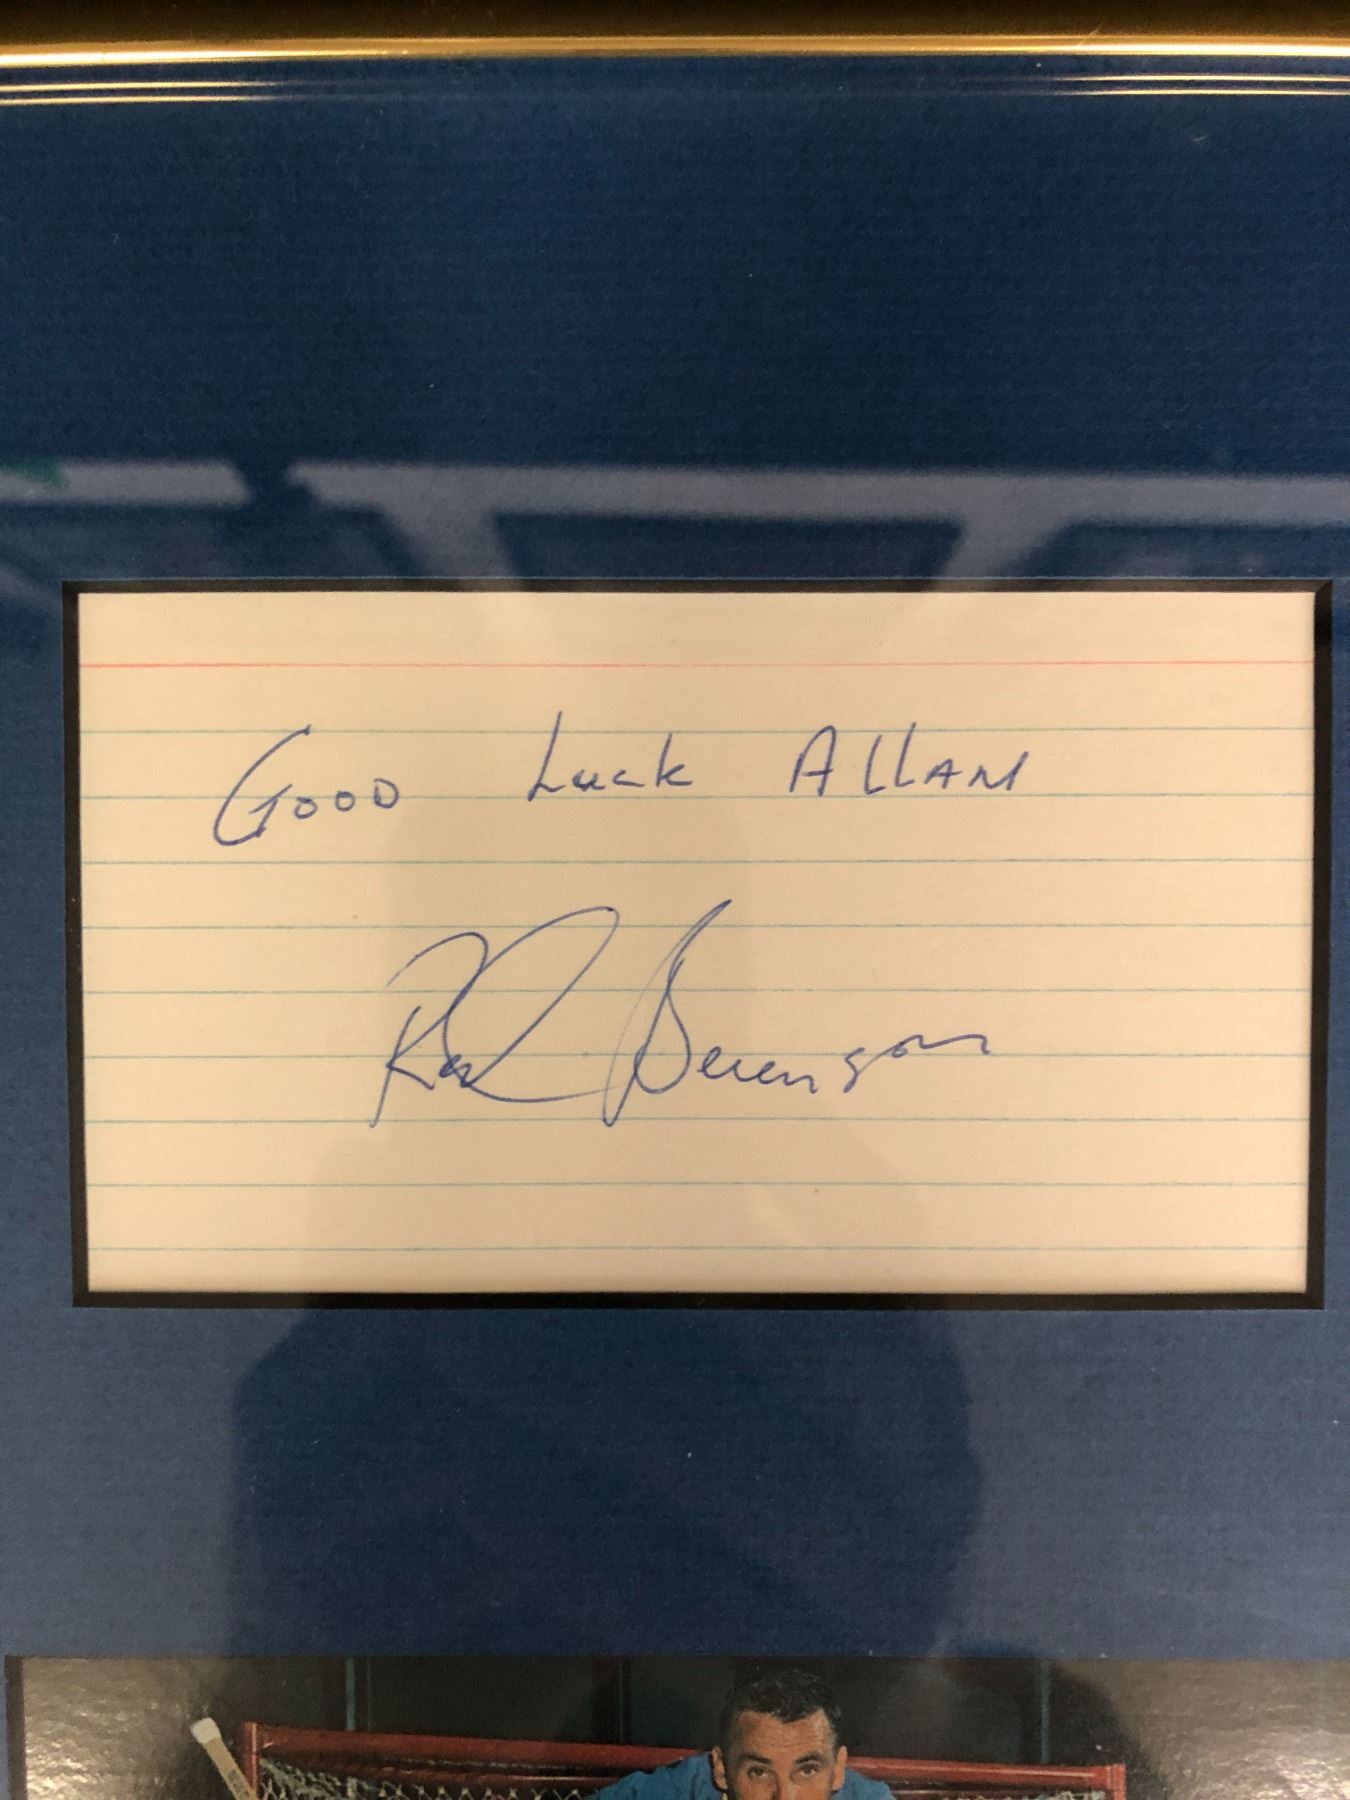 Good Luck ALLAN
Red Berenson